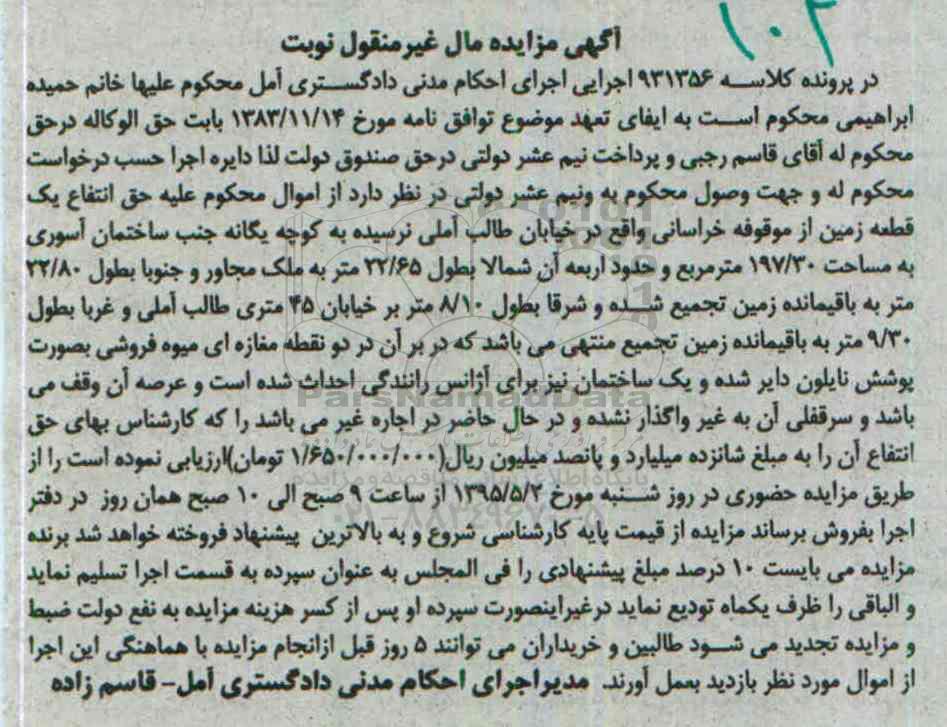 ۱۰۲
آگهی مزایده مال غیرمنقول نوبت
در پرونده کلاسه ۹۳۱۳۵۶ اجرایی اجرای احکام مدنی دادگستری آمل محکوم علیها خانم حمیده
ابراهیمی محکوم است به ایفای تعهد موضوع توافق نامه مورخ ۱۳۸۳/۱۱/۱۴ بابت حق الوکاله درحق
محکوم له آقای قاسم رجبی و پرداخت نیم عشر دولتی درحق صندوق دولت لذا دایره اجرا حسب درخواست
محکوم له و جهت وصول محکوم به ونیم عشر دولتی در نظر دارد از اموال محکوم علیه حق انتفاع یک
قطعه زمین از موقوفه خراسانی واقع در خیابان طالب آملی نرسیده به کوچه یگانه جنب ساختمان آسوری
به مساحت ۱۹۷/۳۰ مترمربع و حدود اربعه آن شمالا بطول ۲۲/۶۵ متر به ملک مجاور و جنوبا بطول ۲۲/۸۰
متر به باقیمانده زمین تجمیع شده و شرقا بطول ۸/۱۰ متر بر خیابان ۴۵ متری طالب آملی و غربا بطول
۹/۳۰ متر به باقیمانده زمین تجمیع منتهی می باشد که در بر آن در دو نقطه مغازه ای میوه فروشی بصورت
پوشش نایلون دایر شده و یک ساختمان نیز برای آژانس رانندگی احداث شده است و عرصه آن وقف می
باشد و سرقفلی آن به غیر واگذار نشده و در حال حاضر در اجاره غیر می باشد را که کارشناس بهای حق
انتفاع آن را به مبلغ شانزده میلیارد و پانصد میلیون ریال(۱/۶۵۰/۰۰۰/۰۰۰ تومان)ارزیابی نموده است را از
طریق مزایده حضوری در روز شنبه مورخ ۱۳۹۵/۵/۲ از ساعت ۹ صبح الی ۱۰ صبح همان روز در دفتر
اجرا بفروش برساند مزایده از قیمت پایه کارشناسی شروع و به بالاترین پیشنهاد فروخته خواهد شد برنده
مزایده می بایست ۱۰ درصد مبلغ پیشنهادی را فی المجلس به عنوان سپرده به قسمت اجرا تسلیم نماید
و الباقی را ظرف یکماه تودیع نماید درغیراینصورت سپرده او پس از کسر هزینه مزایده به نفع دولت ضبط
و مزایده تجدید می شود طالبین و خریداران می توانند ۵ روز قبل ازانجام مزایده با هماهنگی این اجرا
از اموال مورد نظر بازدید بعمل آورند. مدیراجرای احکام مدنی دادگستری آمل– قاسم زاده
ParsNamadData